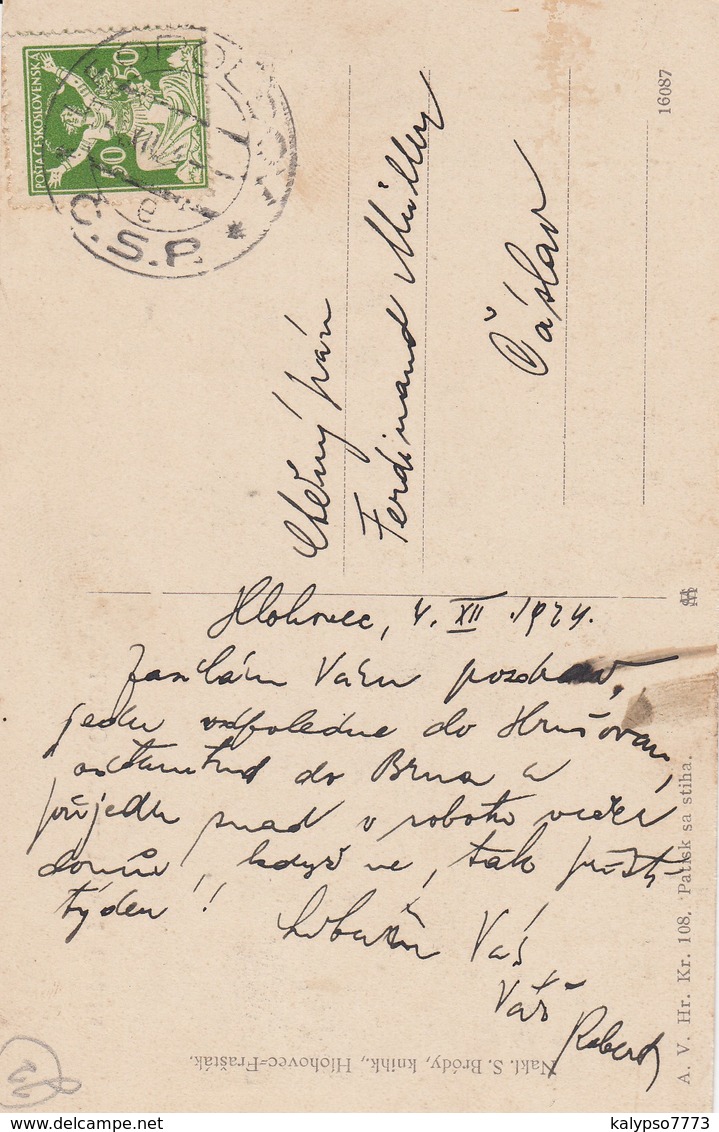 POŠTA ČESKOSLOVENSKÁ
50
50
Č.S.P.
16087
Ctěný pán
Ferdinand Müller
Čáslav
Hlohovec, 4. XII. 1924.
Zasílám Vám pozdrav,
jedu odpoledne do Hrušovan,
do Brna a
přijedu snad v sobotu večer
domů, když ne, tak příští
týden!!
Líbám Váš
Váš
Robert
A. V. Hr. Kr. 108. Patisk sa stíha.
Nakl. S. Bródy, knihk., Hlohovec-Frašták.
22
kalypso7773